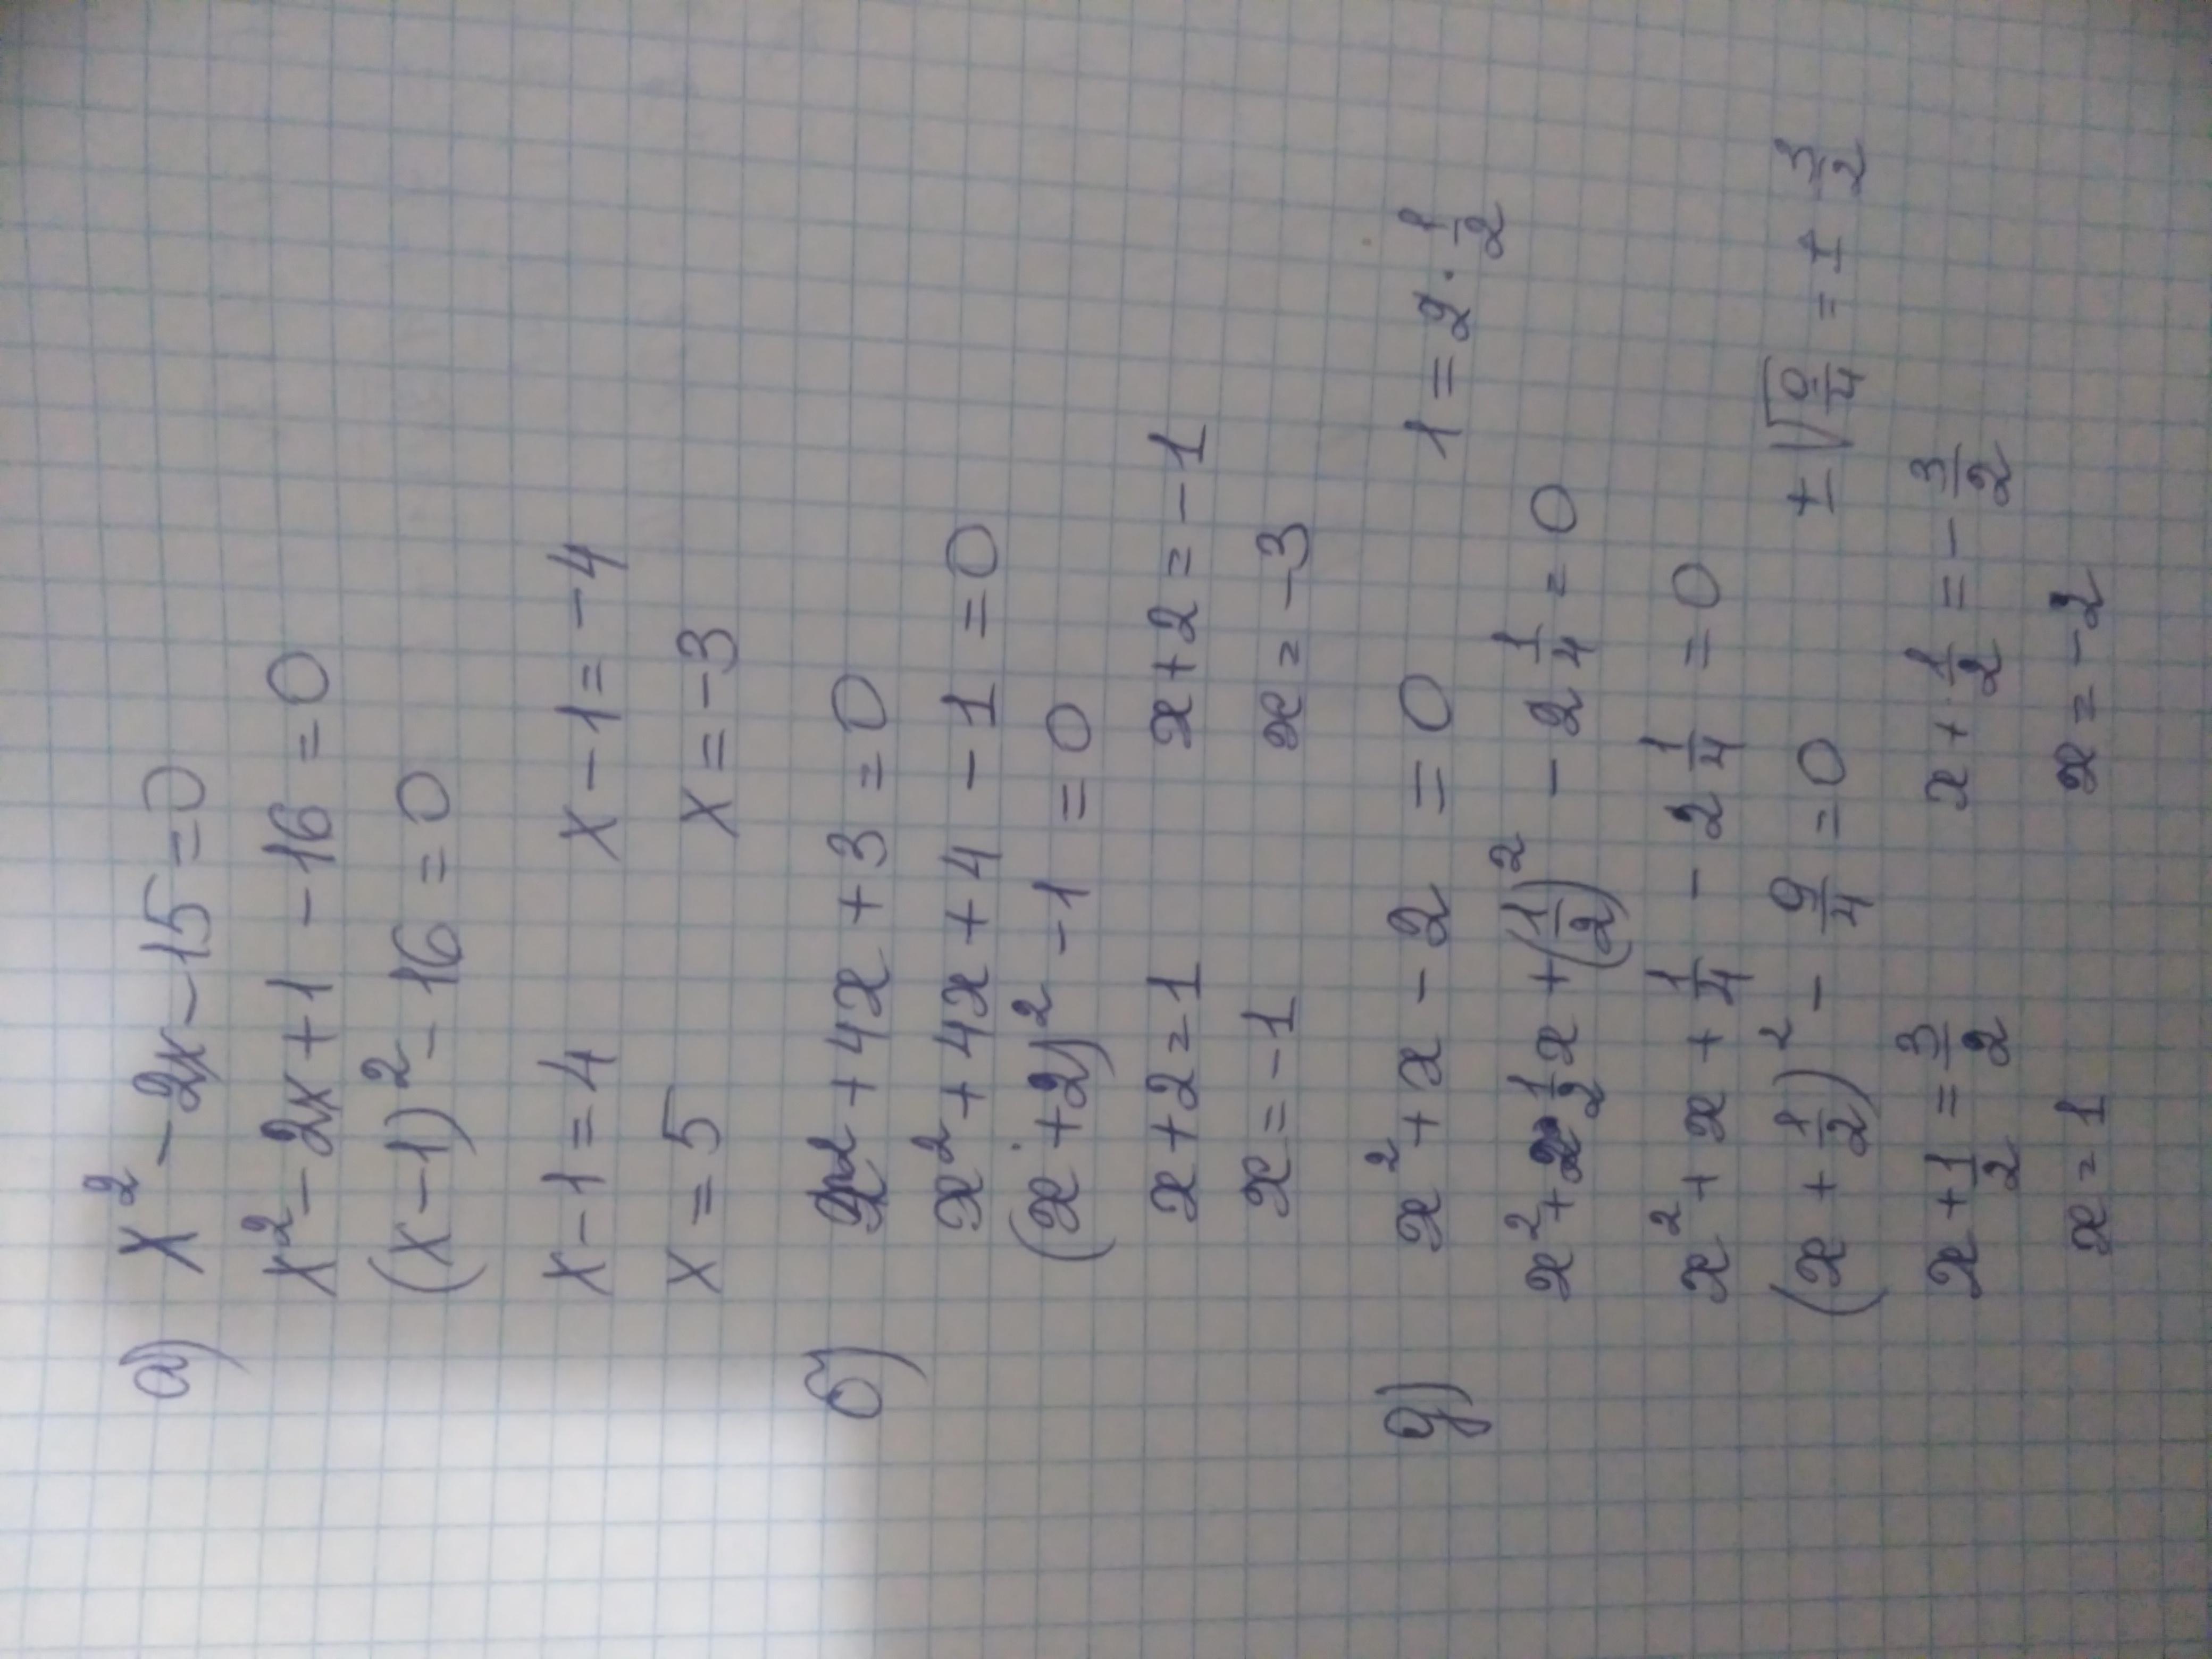 а) x² - 2x - 15 = 0
x² - 2x + 1 - 16 = 0
(x - 1)² - 16 = 0
x - 1 = 4 x - 1 = -4
x = 5 x = -3
б) x² + 4x + 3 = 0
x² + 4x + 4 - 1 = 0
(x + 2)² - 1 = 0
x + 2 = 1 x + 2 = -1
x = -1 x = -3
д) x² + x - 2 = 0 1 = 2 · 1/2
x² + 2 · 1/2 x + (1/2)² - 2 1/4 = 0
x² + x + 1/4 - 2 1/4 = 0
(x + 1/2)² - 9/4 = 0 ± √(9/4) = ± 3/2
x + 1/2 = 3/2 x + 1/2 = - 3/2
x = 1 x = -2